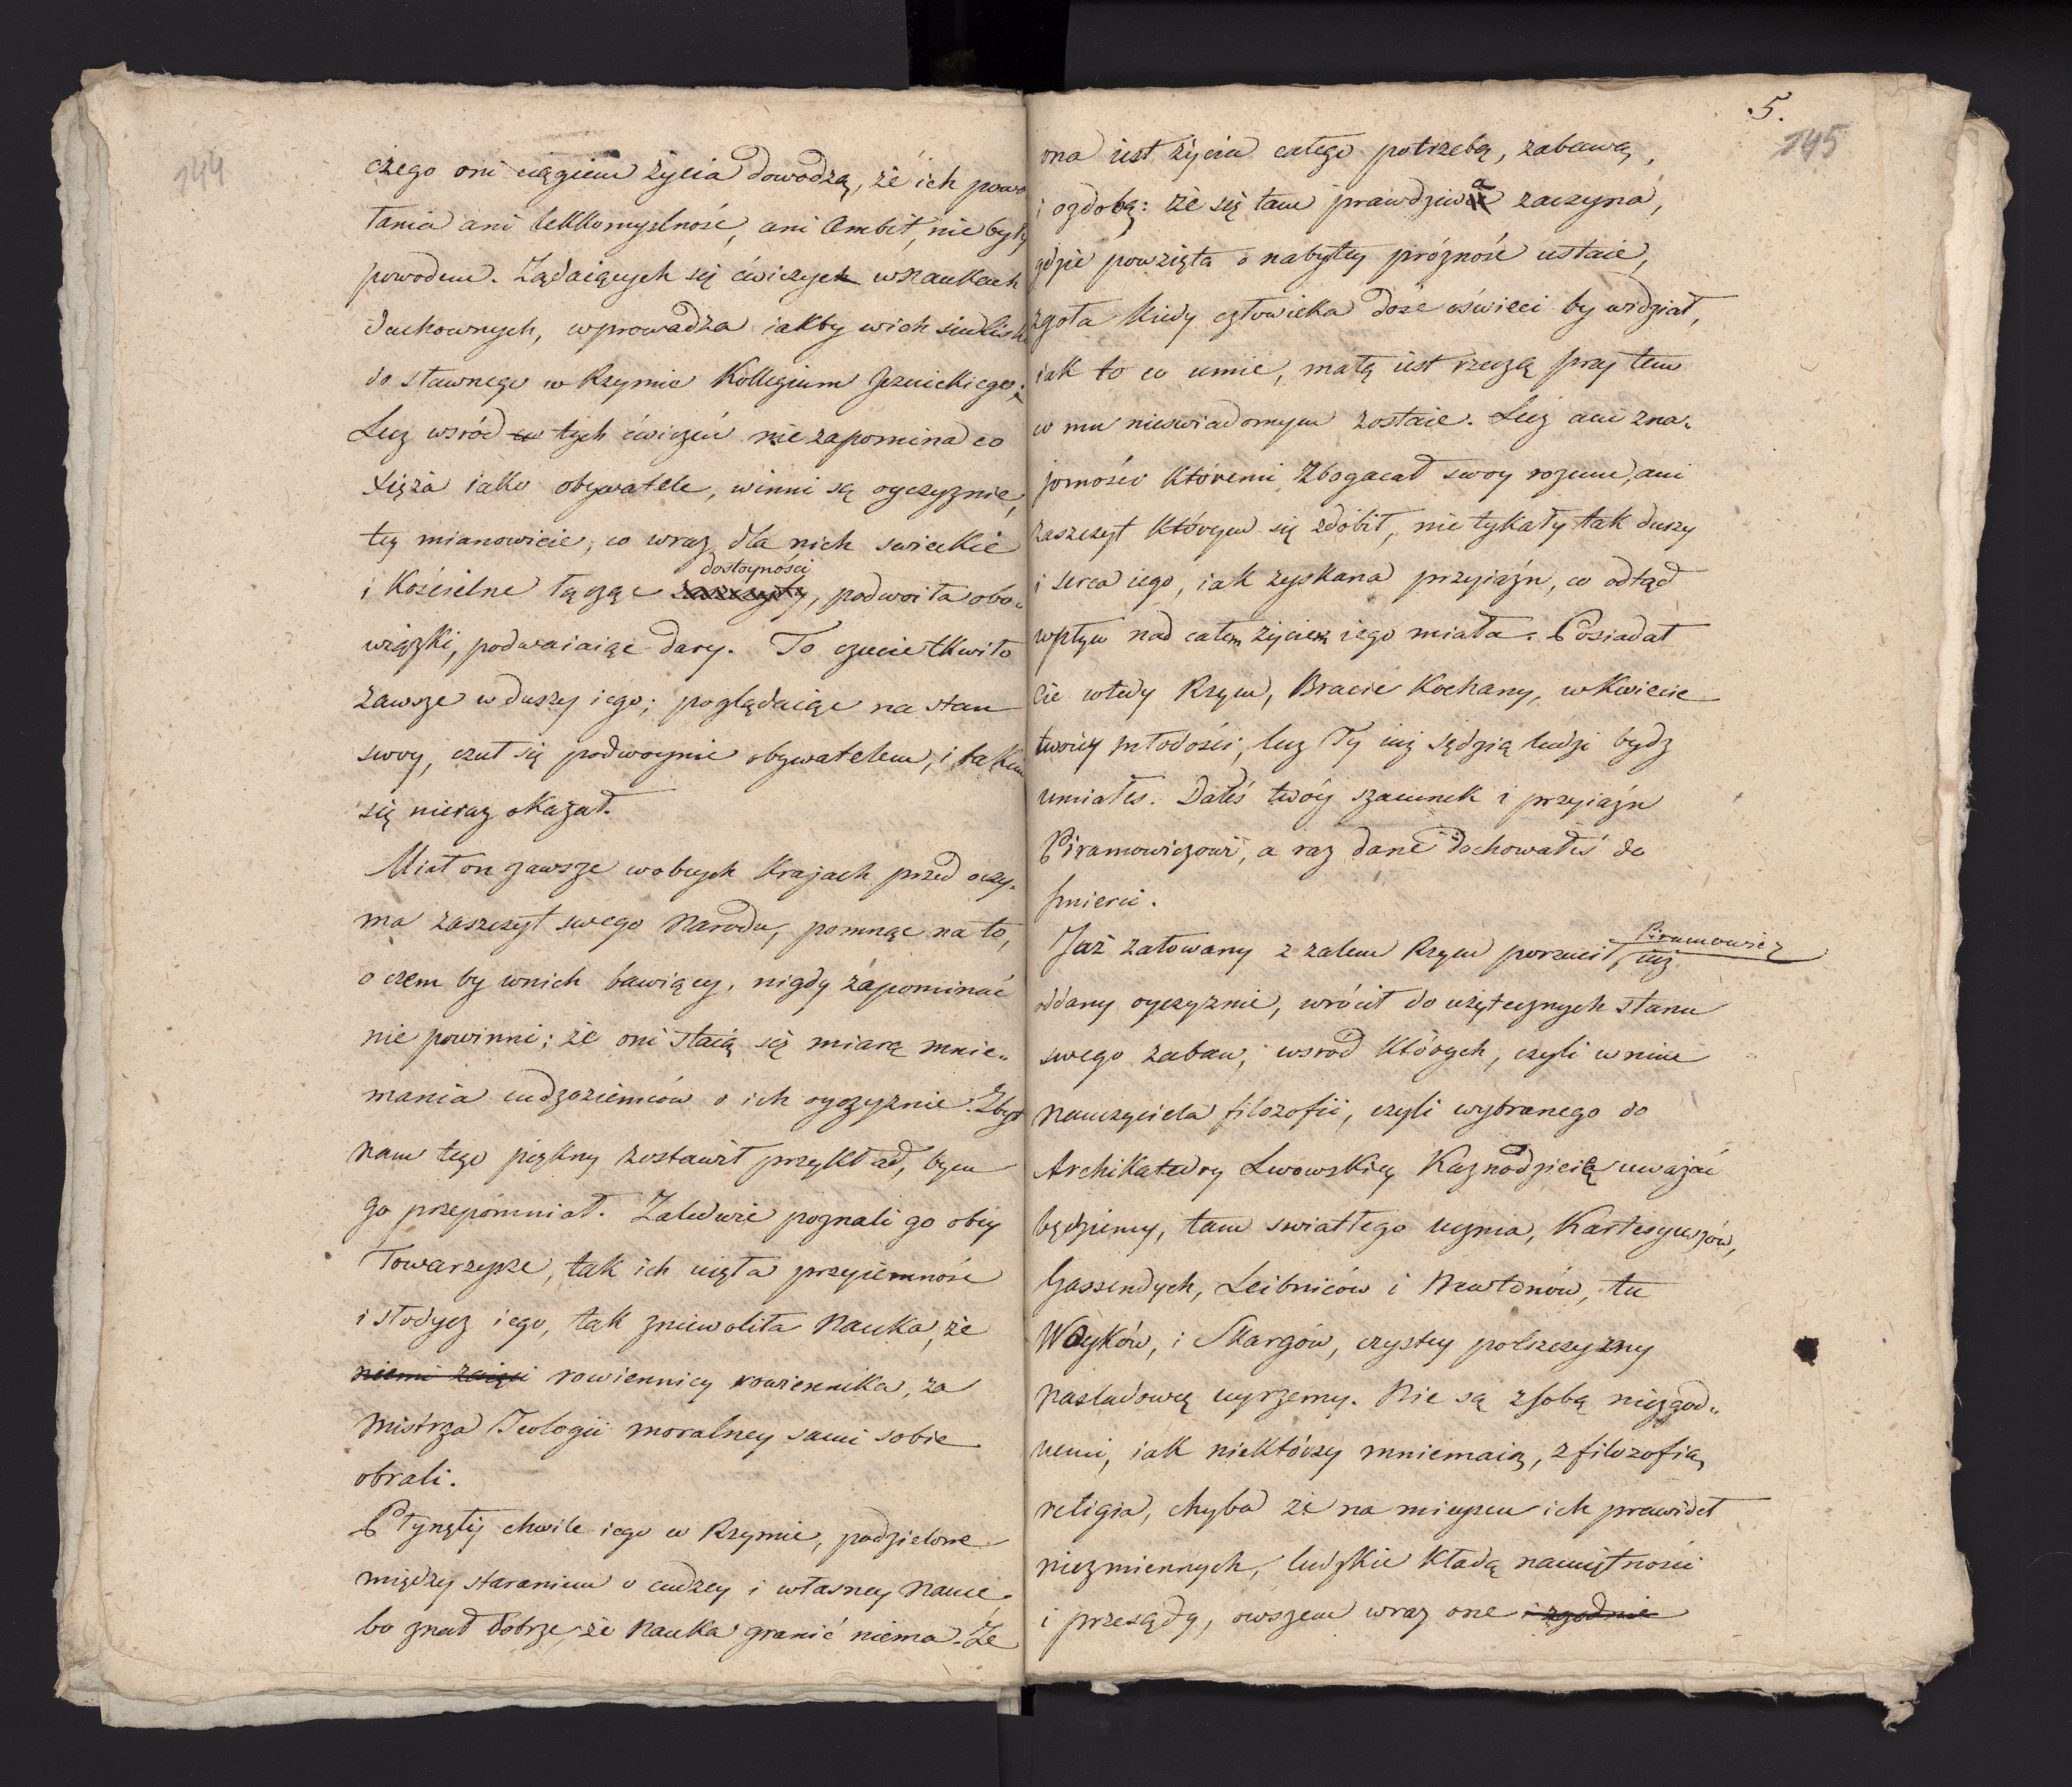 144
czego oni ciągiem życia dowodzą, że ich powo
łania ani lekkomyslność, ani Ambit, nie były
powodem. Żądaiących się ćwiczyć w Naukach
duchownych, wprowadza iakby w ich siedlisko
do sławnego w Rzymie Kollegium Jezuickiego;
Lecz wsród w tych ćwiczeń nie zapomina co
Xięża iako obywatele, winni są oyczyznie,
tey mianowicie, co wraz dla nich swieckie
dostoyności
i Kościelne łącząc zaszczyty, podwoiła obo„
wiązki, podwaiaiąc dary. To czucie tkwiło
zawsze w duszy iego; poglądaiąc na stan
swoy, czuł się podwoynie obywatelem, i takim
się nieraz okazał.
Miał on zawsze w obcych Krajach przed oczy„
ma zaszczyt swego Narodu, pomnąc na to,
o czem by w nich bawiący, nigdy zapominać
nie powinni; że oni staią się miarą mnie„
mania cudzoziemców o ich oyczyznie. Zbyt
nam tego piękny zostawił przykład, bym
go przepomniał. Zaledwie poznali go obcy
Towarzysze, tak ich uięła przyiemność
i słodycz iego, tak zniewoliła Nauka, że
niemi zaięci rowiennicy rowiennika, za
Mistrza Teologii moralney sami sobie
obrali.
Płynęły chwile iego w Rzymie, podzielone
między staraniem o cudzey i własney Nauce,
bo znał dobrze, że Nauka granic niema. Że
5.
145
ona iest życia całego potrzebą, zabawą,
i ozdobą: że się tam prawdziwa zaczyna,
gdzie powzięta o nabytey próżność ustaie,
zgoła kiedy człowieka dość oświeci by widział,
iak to co umie, małą iest rzeczą przy tem
co mu nieswiadomym zostaie. Lecz ani zna„
jomości któremi Zbogacał swoy rozum, ani
zaszczyt którym się zdobił, nie tykały tak duszy
i serca iego, iak zyskana przyiaźn, co odtąd
wpływ nad całem życiem iego miała. Posiadał
Cie wtedy Rzym, Bracie Kochany, w kwiecie
twoiey młodości, lecz Ty iuż sędzią ludzi bydz
umiałes. Dałeś twóy szacunek i przyiaźn
Piramowiczowi, a raz dane dochowałeś do
śmierci.
Piramowicz
Już żałowany z żalem Rzym porzucił, iuż
oddany oyczyznie, wrócił do użytecznych stanu
swego zabaw, wsrod których, czyli w nim
Nauczyciela filozofii, czyli wybranego do
Archikatedry Lwowskiey Kaznodzieię uważać
będziemy, tam swiatłego ucznia, Kartesyuszów,
Gassendych, Leibniców i Newtonów, tu
Wuyków, i Skargów, czystey polszczyzny
nasladowcę uyrzemy. Nie są z sobą niezgod„
nemi, iak niektórzy mniemaią, z filozofią
religia, chyba że na mieyscu ich prawideł
niezmiennych, ludzkie kładą namiętności
i przesądy, owszem wraz one i zgodnie